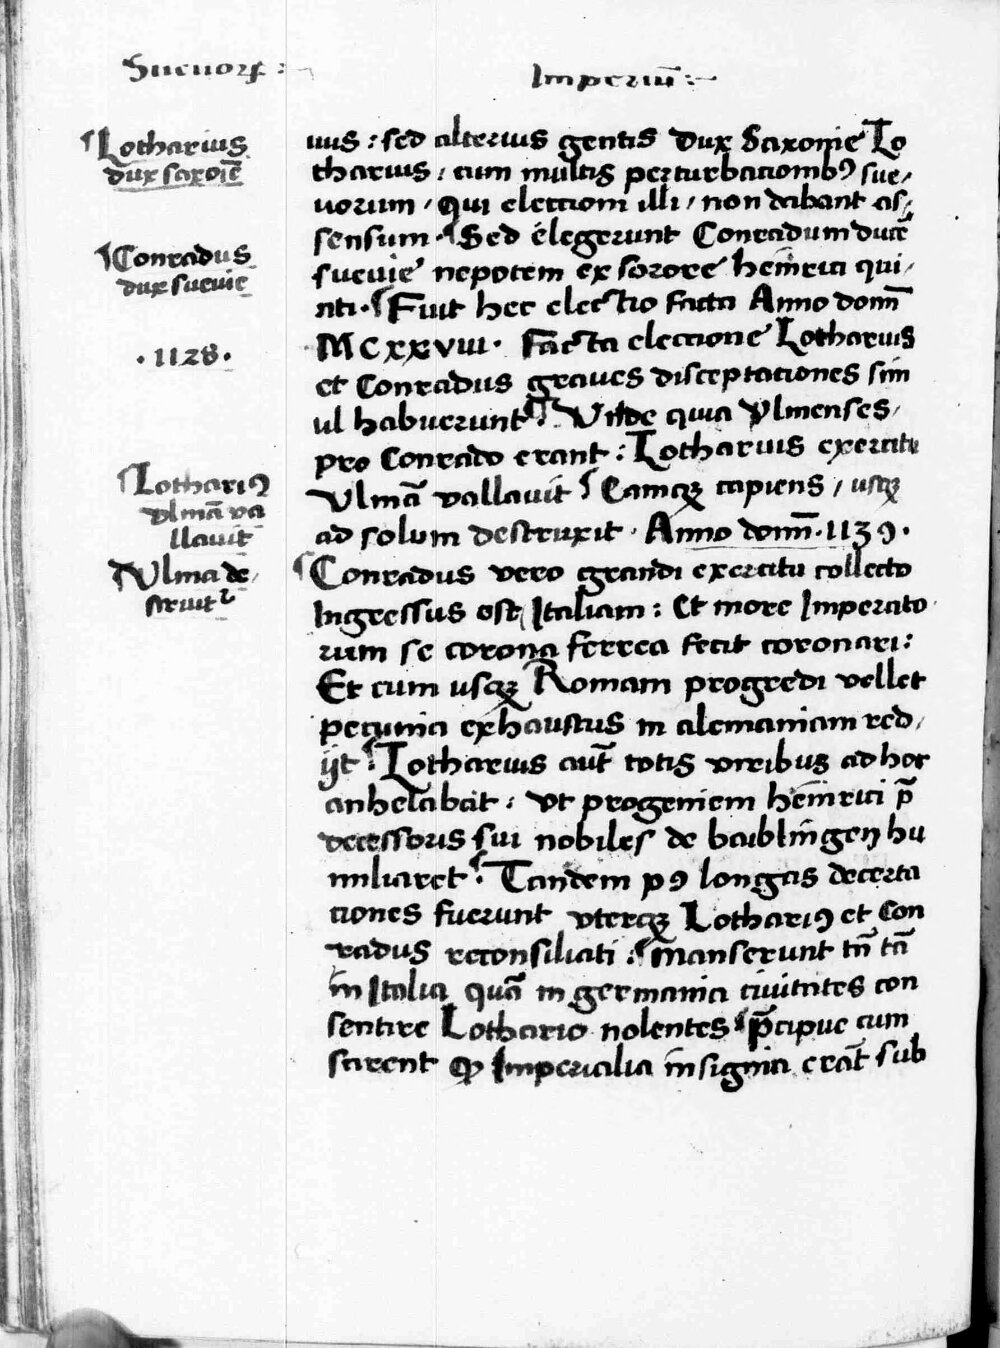 Sueuorꝝ :
Imperiū :~
¶ Lotharius
dux saxoīe
¶ Conradus
dux sueuie
· 1128 ·
¶ Lothariꝰ
vlmā va
llauit
¶ Vlma de/
struit᷑
uus : sed alterius gentis dux Saxonie Lo
tharius / cum multis perturbationibꝰ sue/
uorum / Qui electioni illi / non dabant as/
sensum · ¶ Sed elegerunt Conradum ducē
sueuie nepotem ex sorore heinrici qui/
nti · ¶ Fuit hec electio facta Anno domī
MCXXVIII · Facta electione Lotharius
et Conradus graues disceptationes sim
ul habuerunt ¶ : Vnde quia Vlmenses /
pro Conrado erant : Lotharius exercitu
Vlmā vallauit ¶ Eamqꝫ capiens / usqꝫ
ad solum destruxit · Anno domī · 1139 ·
¶ Conradus vero grandi exercitu collecto
Ingressus est Italiam : Et more Imperato
rum se corona ferrea fecit coronari :
Et cum usqꝫ Romam progredi vellet
pecunia exhaustus in alemaniam red/
ijt · ¶ Lotharius aut̄ totis viribus ad hoc
anhelabat : vt progeniem heinrici p̄
decessoris sui nobiles de baiblingen hu
miliaret · ¶ Tandem pꝰ longas decerta
tiones fuerunt vterqꝫ Lothariꝰ et Con
radus reconsiliati : ¶ manserunt tn̄ tā
in Italia quā in germania ciuitates con
sentire Lothario nolentes ¶ p̄cipue cum
scirent ꝙ Imperialia insignia erāt sub